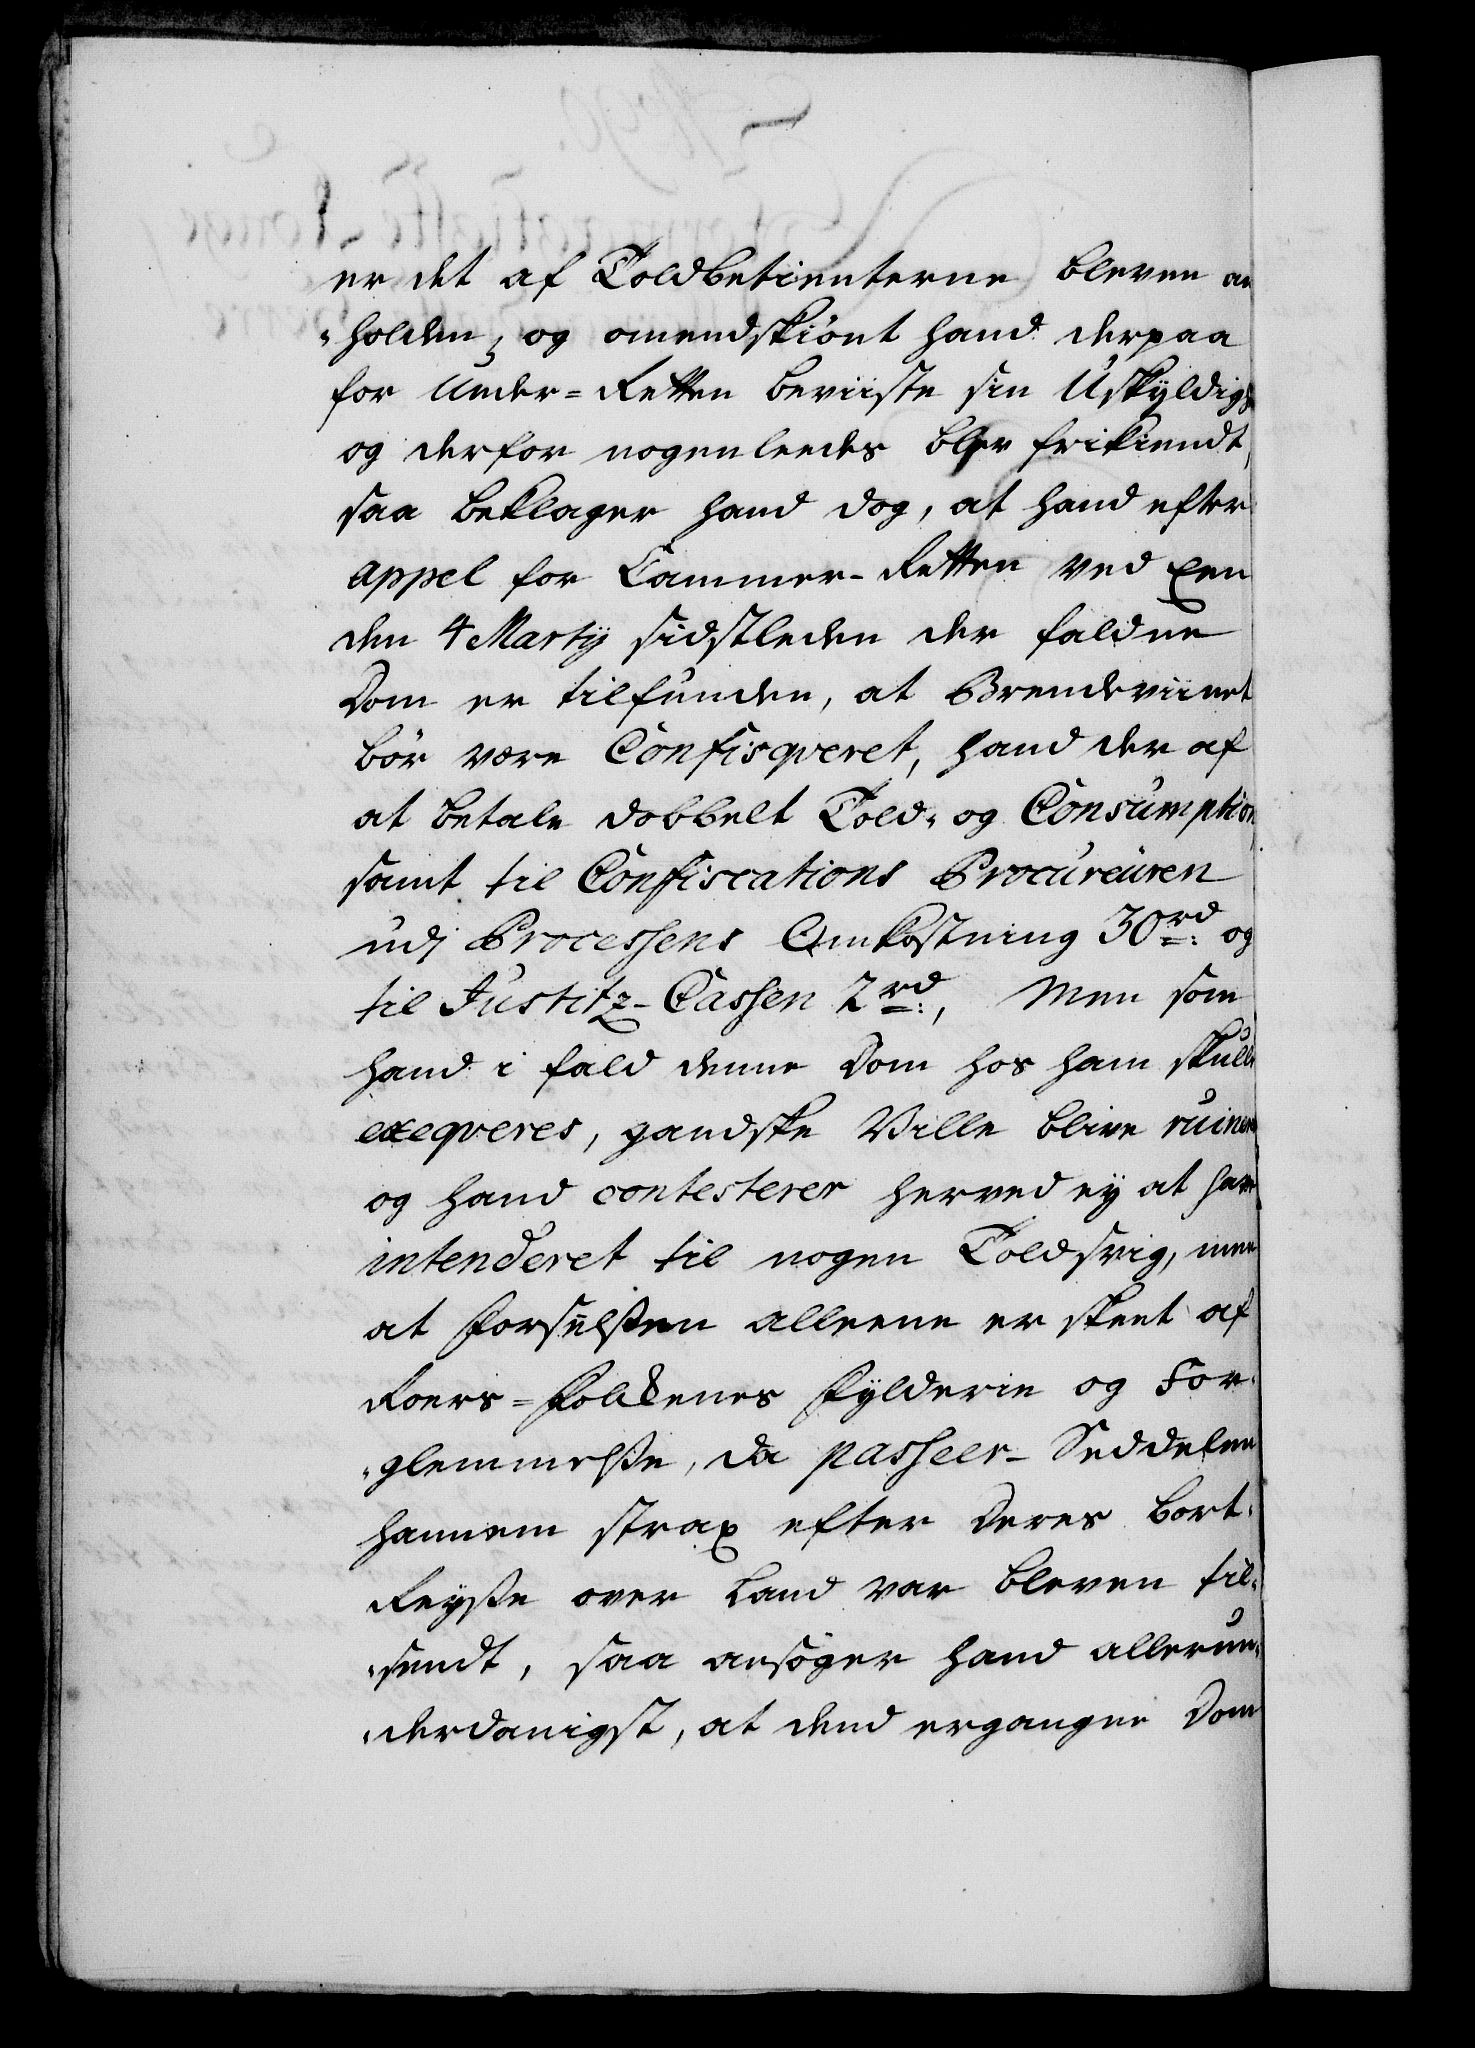 er det af Toldbetienterne bleven an
-holden, og omendskiönt hand derpaa
for Under-Retten beviiste sin Uskyldigh
og derfor nogenleedes blev frikiendt,
saa beklager hand dog, at hand efter
appel for Cammer-Retten ved Een
den 4 Martij sidstleden der faldne
Dom er tilfunden, at Brendeviinet
bör være Confisqveret, hand der af
at betale dobbelt Told- og Consumption
samt til Confiscations Procureuren
udj Processens Omkostning 30 rd: og
til Justitz-Cassen 2 rd:, Men som
hand i fald denne Dom hos ham skulle
exeqveres, gandske Ville blive ruinere
og hand contesterer herved ey at have
intenderet til nogen Toldsvig, men
at Forseelßen alleene er skeet af
Roers-Folckenes Fylderie og For-
-glemmelße, da passeer-Seddelen
hannem strax efter Deres bort-
Reyße over Land var bleven til-
-sendt, saa ansöger hand allerun-
-derdanigst, at dend ergangne Dom